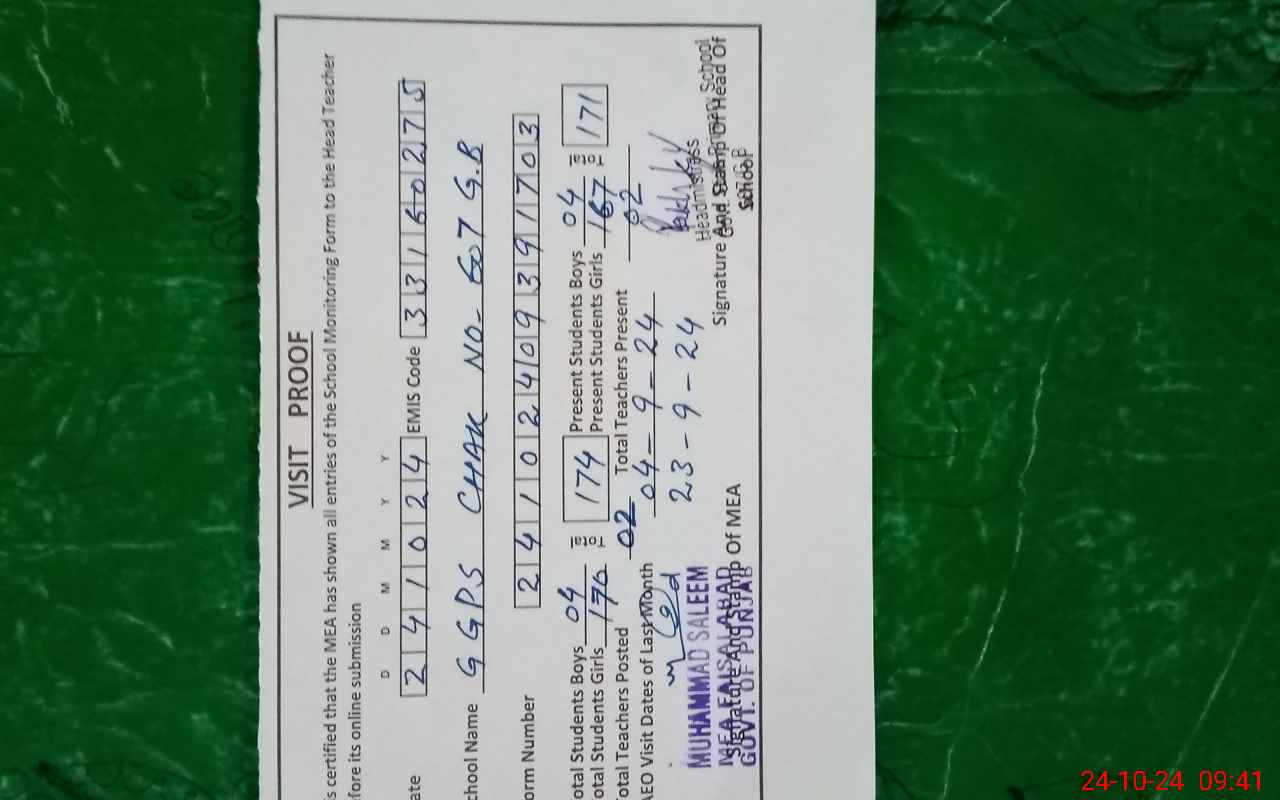 VISIT PROOF
s certified that the MEA has shown all entries of the School Monitoring Form to the Head Teacher
fore its online submission
D D M M Y Y
ate 241024 EMIS Code 33160275
chool Name GGPS CHAK NO- 607 G.B
orm Number 24102409391703
otal Students Boys 04 Total 174 Present Students Boys 04 Total 171
otal Students Girls 170 Present Students Girls 167
otal Teachers Posted 02 Total Teachers Present 02
AEO Visit Dates of Last Month 04-9-24
23-9-24
MUHAMMAD SALEEM
MEA FAISALABAD
GOVT. OF PUNJAB
Signature And Stamp Of MEA
Headmistress
Primary School
Signature And Stamp Of Head Of
School
24-10-24 09:41